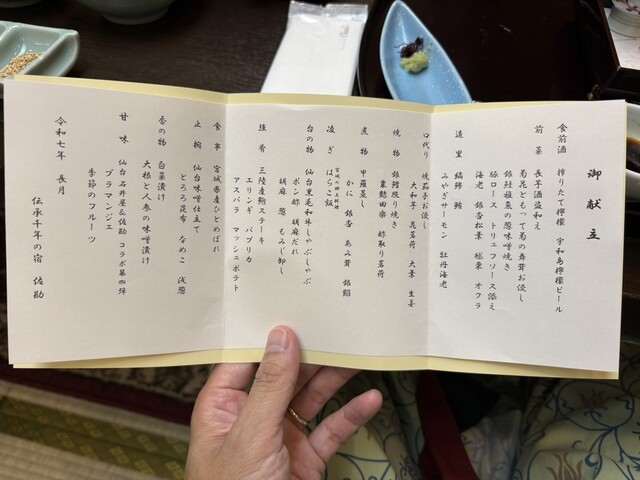 御献立
食前酒　搾りたて檸檬　宇和島檸檬ビール
前菜　長芋酒盗和え
菊花ともって菊の舞茸お浸し
銀鮭雅気の葱味噌焼き
豚ロース　トリュフソース添え
海老　銀杏松葉　穂栗　オクラ
造里　縞鯵　鮪
みやぎサーモン　牡丹海老
口代り　焼茄子お浸し
大和芋　茗荷　大葉　生姜
焼物　銀鱈照り焼き
粟麩田楽　酢取り茗荷
煮物　甲羅蒸し
かに　銀杏　あみ茸　銀餡
凌ぎ　宮城の郷土料理
はらこ飯
台の物　仙台黒毛和牛しゃぶしゃぶ
ポン酢　胡麻だれ
胡麻　葱　もみじ卸し
強肴　三陸産鮑ステーキ
エリンギ　パプリカ
アスパラ　マッシュポテト
食事　宮城県産ひとめぼれ
止椀　仙台味噌仕立て
とろろ昆布　なめこ　浅葱
香の物　白菜漬け
大根と人参の味噌漬け
甘味　仙台 石井屋&佐勘 コラボ第四弾
ブラマンジェ
季節のフルーツ
令和七年　長月
伝承千年の宿　佐勘